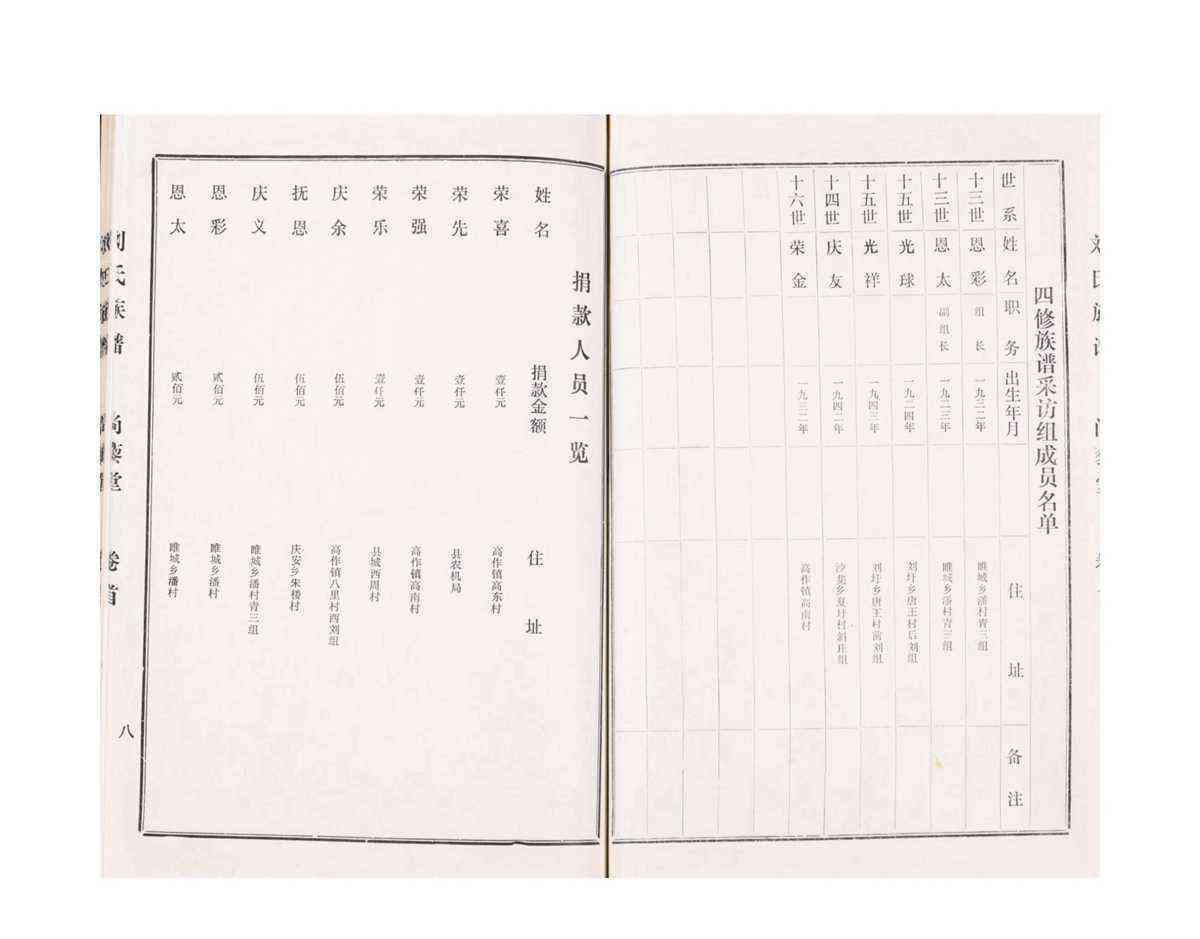 四修族谱采访组成员名单
世系 姓名 职务 出生年月 住址 备注
十三世 恩彩 组长 一九三二年 睢城乡潘村青三组
十三世 恩太 副组长 一九二三年 睢城乡潘村青三组
十五世 光球 一九二四年 刘圩乡唐王村后刘组
十五世 光祥 一九四三年 刘圩乡唐王村前刘组
十四世 庆友 一九四二年 沙集乡夏圩村斜庄组
十六世 荣金 一九三二年 高作镇高南村
捐款人员一览
姓名 捐款金额 住址
荣喜 壹仟元 高作镇高东村
荣先 壹仟元 县农机局
荣强 壹仟元 高作镇高南村
荣乐 壹仟元 县城西周村
庆余 伍佰元 高作镇八里村西刘组
抚恩 伍佰元 庆安乡朱楼村
庆义 伍佰元 睢城乡潘村青三组
恩彩 贰佰元 睢城乡潘村
恩太 贰佰元 睢城乡潘村
刘氏族谱 尚藜堂 卷首
八